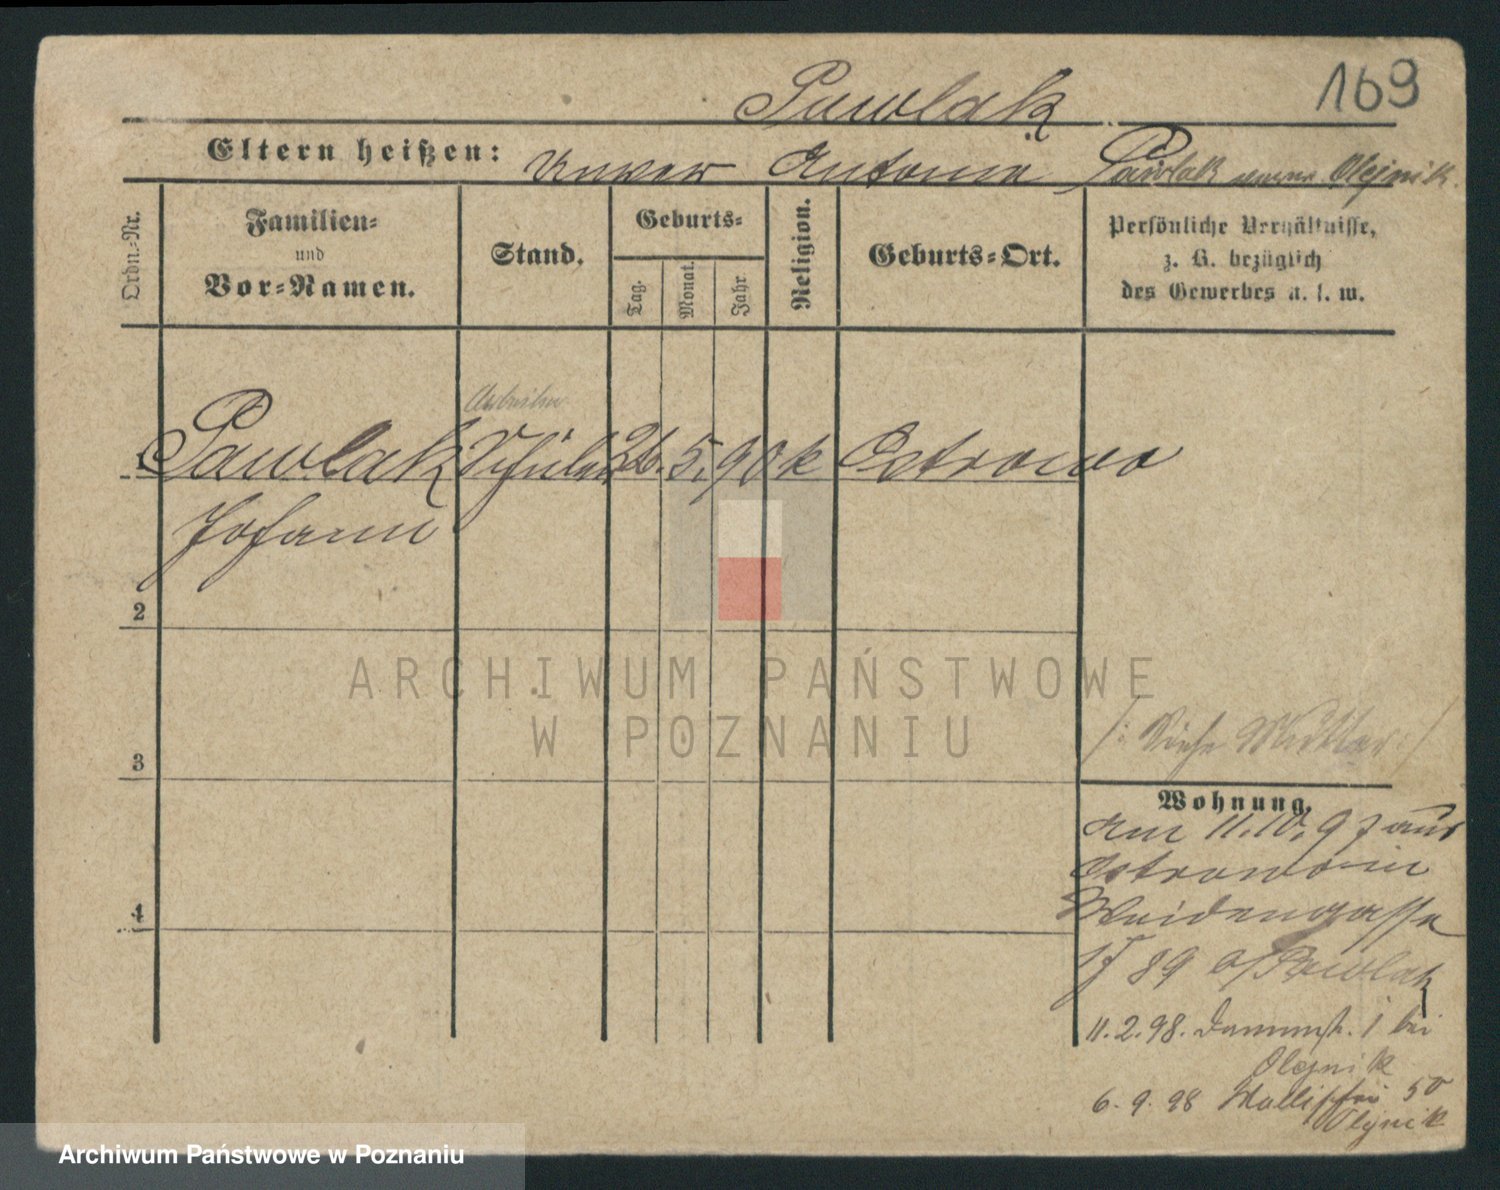 169
Pawlak
Eltern heißen: Unver Antonie Pawlak Olejnik.
Ordn.-Nr.
Familien-
und
Vor-Namen.
Stand.
Geburts-
Tag.
Monat.
Jahr.
Religion.
Geburts-Ort.
Persönliche Verhältnisse,
z. B. bezüglich
des Gewerbes u. s. w.
Arbeiter
1 Pawlak Schüler 26. 5. 90 k Ostrowo
Johann
2
3
4
/: Siehe Mutter :/
Wohnung.
Am 11.10.97 aus
Ostrowo in
Weidengasse
17 89 b/Pawlak
11.2.98. Dammstr. 1 bei
Olejnik
6.9.98 Wallischei 50
Olejnik
ARCHIWUM PAŃSTWOWE
W POZNANIU
Archiwum Państwowe w Poznaniu